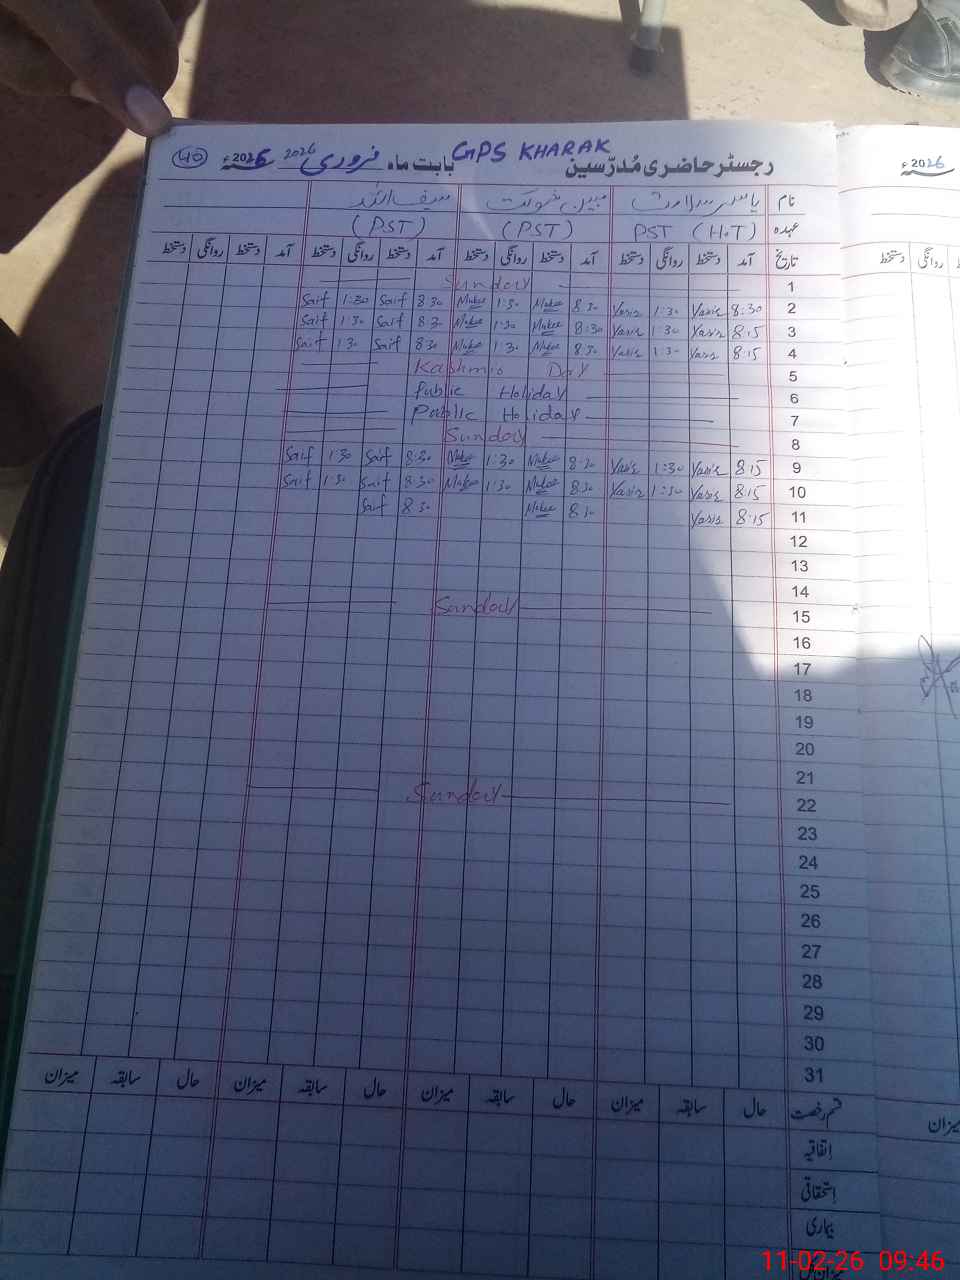 40 2026ء 2026 فروری بابت ماہ GPS KHARAK رجسٹر حاضری مُدرّسین
نام یاسر سلامت مبین شوکت سیف اللہ
عہدہ PST (H.T) (PST) (PST)
تاریخ آمد دستخط روانگی دستخط آمد دستخط روانگی دستخط آمد دستخط روانگی دستخط آمد دستخط روانگی دستخط
1 Sunday
2 8:30 Yasir 1:30 Yasir 8:30 1:30 8:30 Saif 1:30 Saif
3 8:15 Yasir 1:30 Yasir 8:30 1:30 8:30 Saif 1:30 Saif
4 8:15 Yasir 1:30 Yasir 8:30 1:30 8:30 Saif 1:30 Saif
5 Kashmir Day
6 Public Holiday
7 Public Holiday
8 Sunday
9 8:15 Yasir 1:30 Yasir 8:30 1:30 8:30 Saif 1:30 Saif
10 8:15 Yasir 1:30 Yasir 8:30 1:30 8:30 Saif 1:30 Saif
11 8:15 Yasir 8:30 8:30 Saif
12
13
14
15 Sunday
16
17
18
19
20
21
22 Sunday
23
24
25
26
27
28
29
30
31
قسم رخصت حال سابقہ میزان حال سابقہ میزان حال سابقہ میزان حال سابقہ میزان
اتفاقیہ
استحقاقی
بیماری
2026ء
دستخط روانگی
میزان
11-02-26 09:46